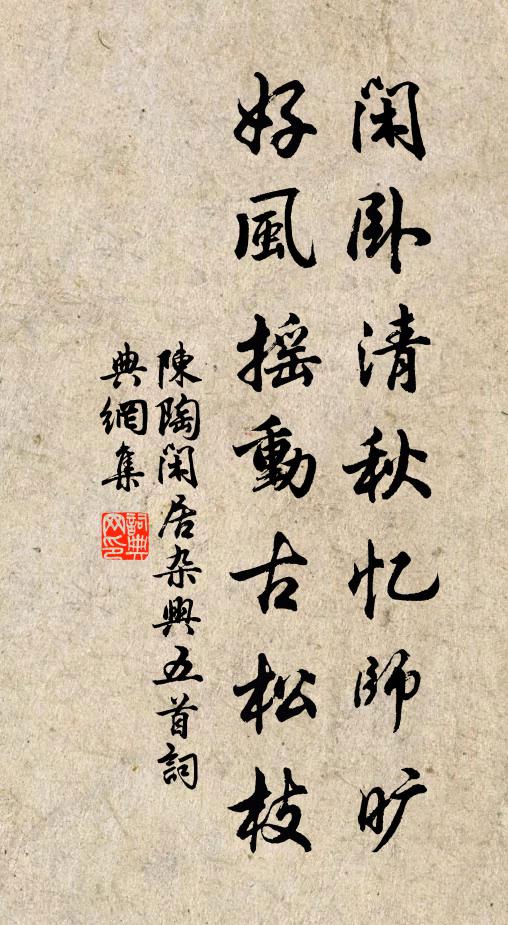 闲卧清秋忆師旷
好風摇動古松枝
陳陶闲居杂興五首詞
典網集
詞典网印